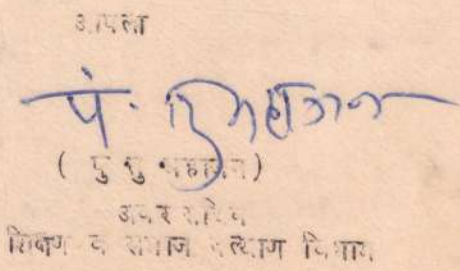 आपला
( पु पु महाजन )
अवर सचिव
शिक्षण व समाज कल्याण विभाग